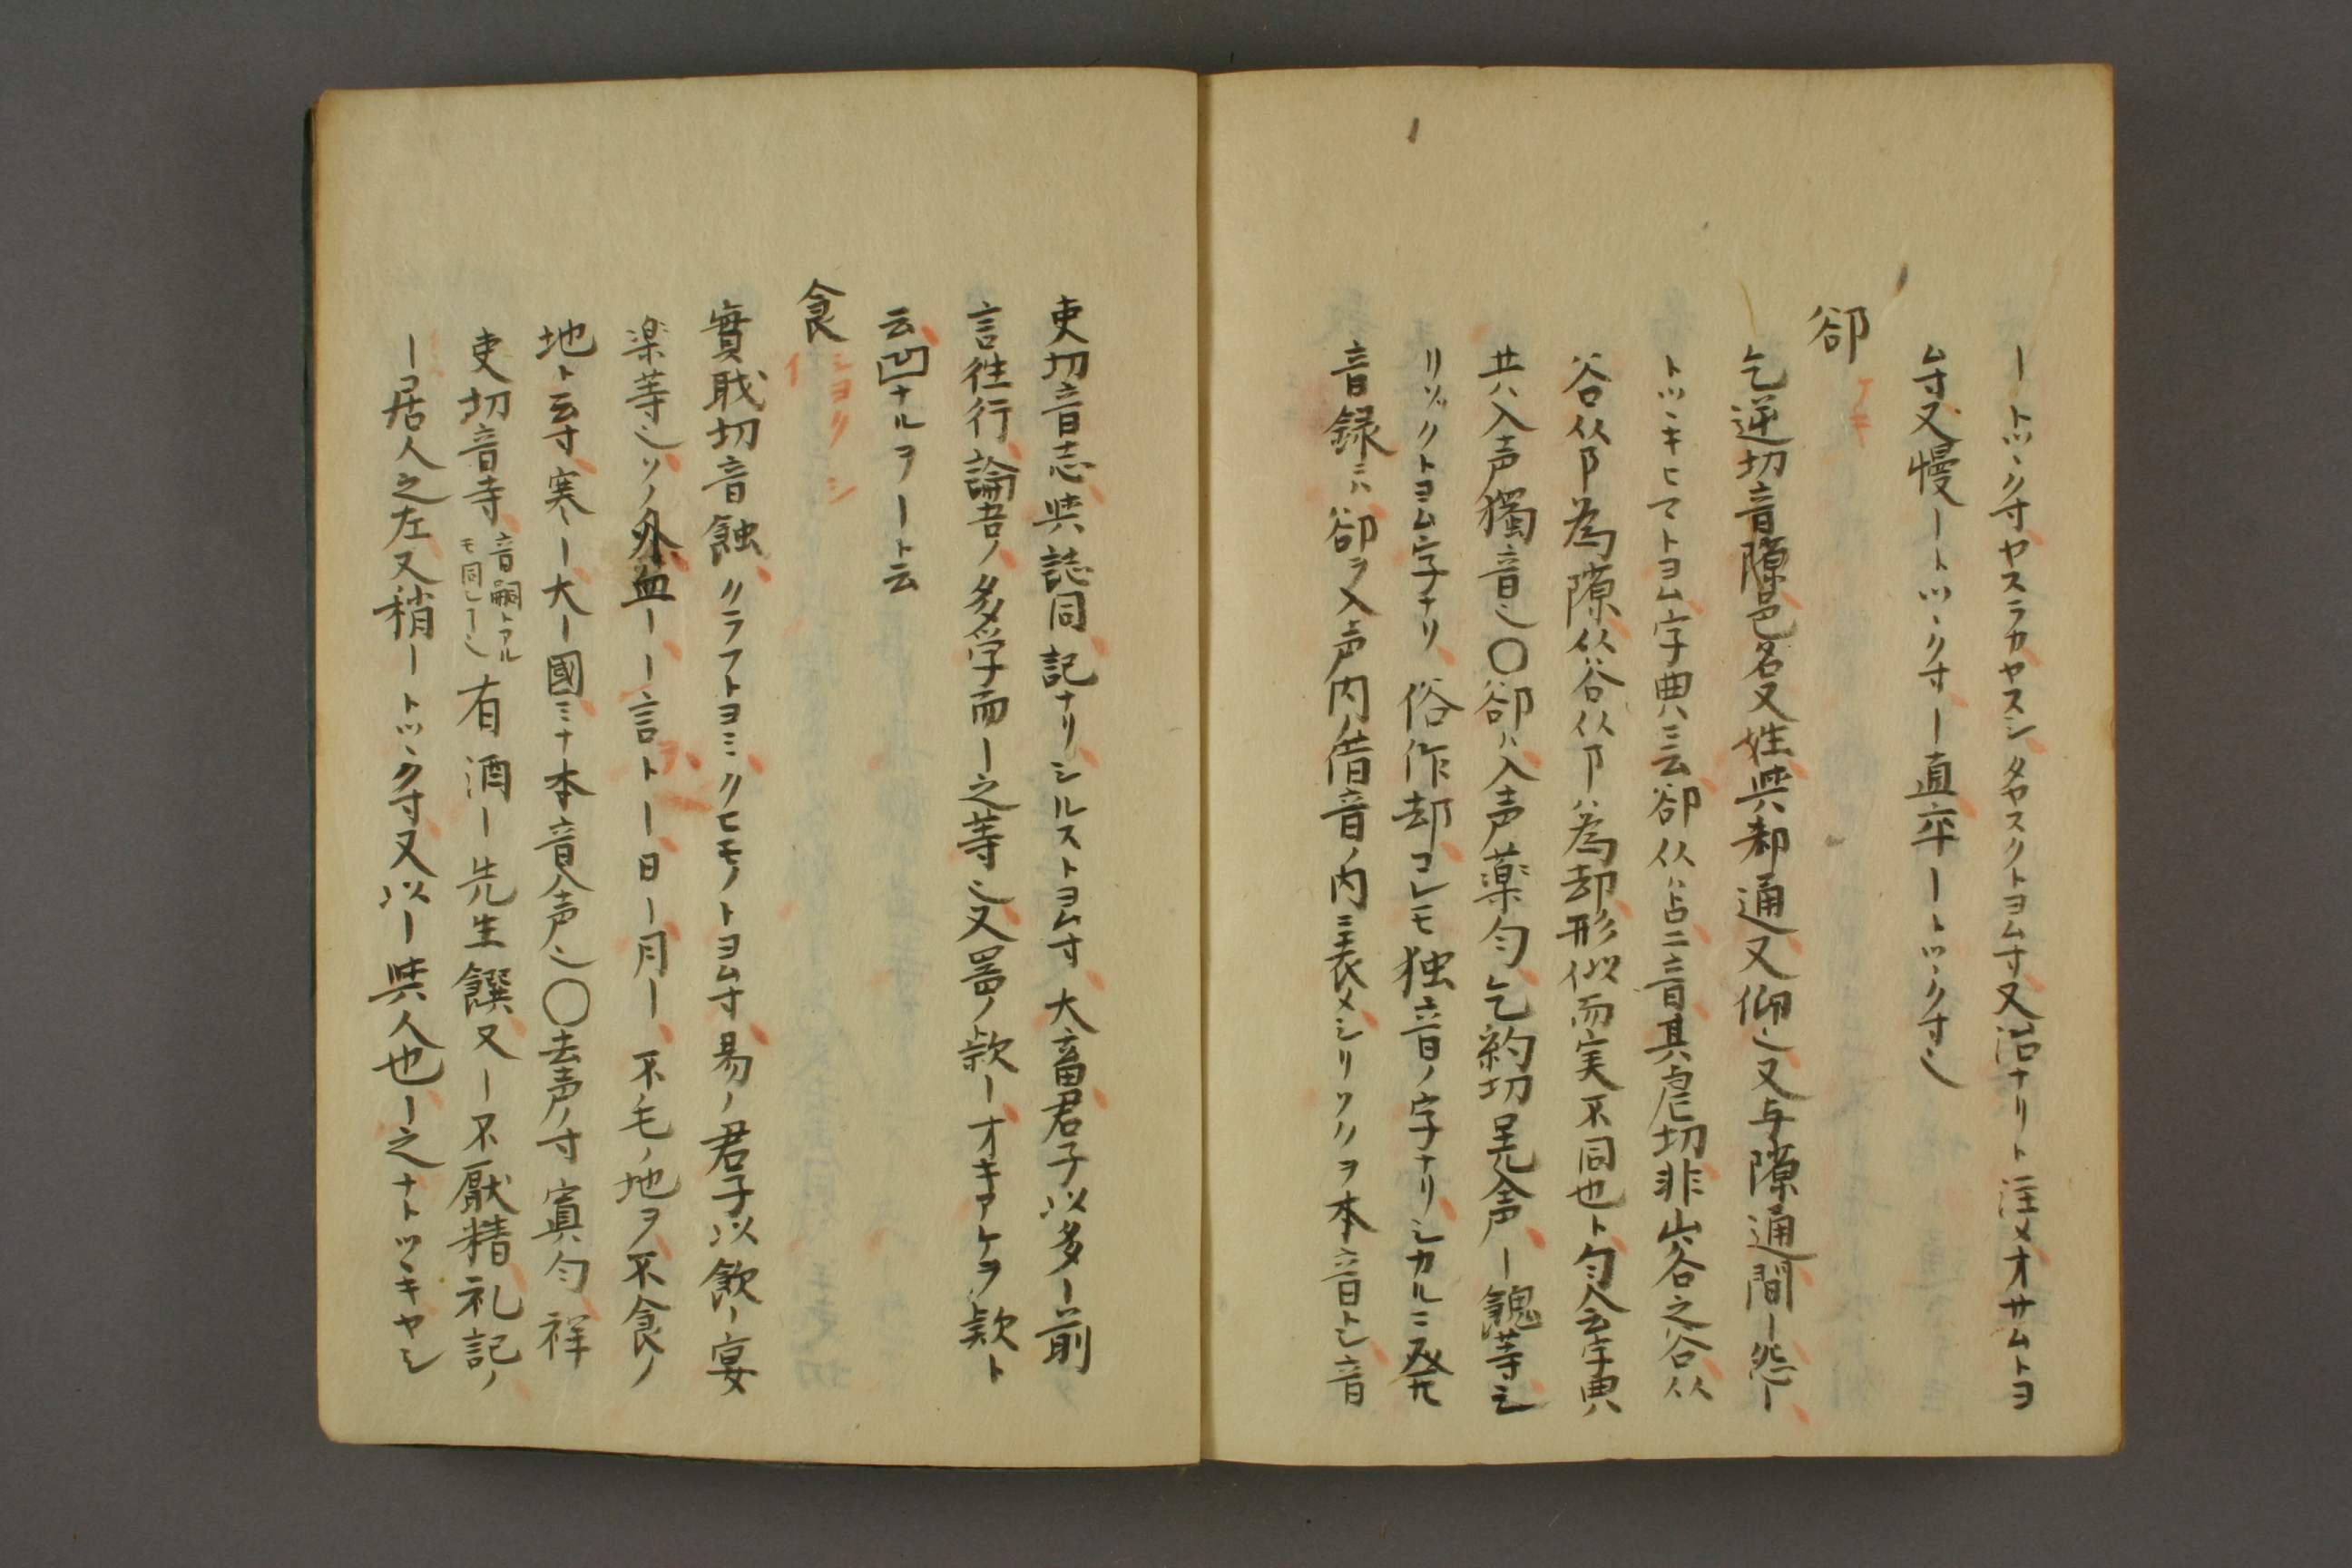 ートツヽク寸ヤスラカヤスシタヤスクトヨム寸又治ナリト注メオサムトヨ
ム寸又慢ートツヽク寸ー直卒ートツヽク寸乄
郤 ケキ
乞逆切音隙邑名又姓與郄通又仰乄又与隙通間ー怨ー
トツヽキヒマトヨム字典ニ云郤从占二音其虐切非山谷之谷从
谷从阝為隙从谷从卩為却形似而実不同也ト匀会字典
共ニ入声獨音乄〇郤ハ入声薬匀乞約切呈入声ー餽等乄
リソックトヨム字ナリ俗作却コレモ独音ノ字ナリシカルニ発
音録ニハ郤ヲ入声内ノ借音ノ内ニ表メシリソクヲ本音トシ音
吏切音志與誌同記ナリシルストヨム寸大畜君子以多ー前
言往行論吾ノ多学而ー之等乄又噐ノ款ーオキアケヲ款ト
云凹ナルヲート云
食 シヨクシ イ
實職切音蝕クラフトヨミクヒモノトヨム寸易ノ君子以飲ー宴
楽等乄ソノ外血ーー言ヲトー日ー月ー不毛ノ地ヲ不食ノ
地ト云寸寒ー大ー國ミナ本音入声乄〇去声ノ寸寘匀祥
吏切音寺音嗣トアルモ同シー乄有酒ー先生饌又ー不厭精礼記ノ
ーヿ居人之左又稍ートツヽク寸又以ー與人也ー之ナトツヽキヤシ